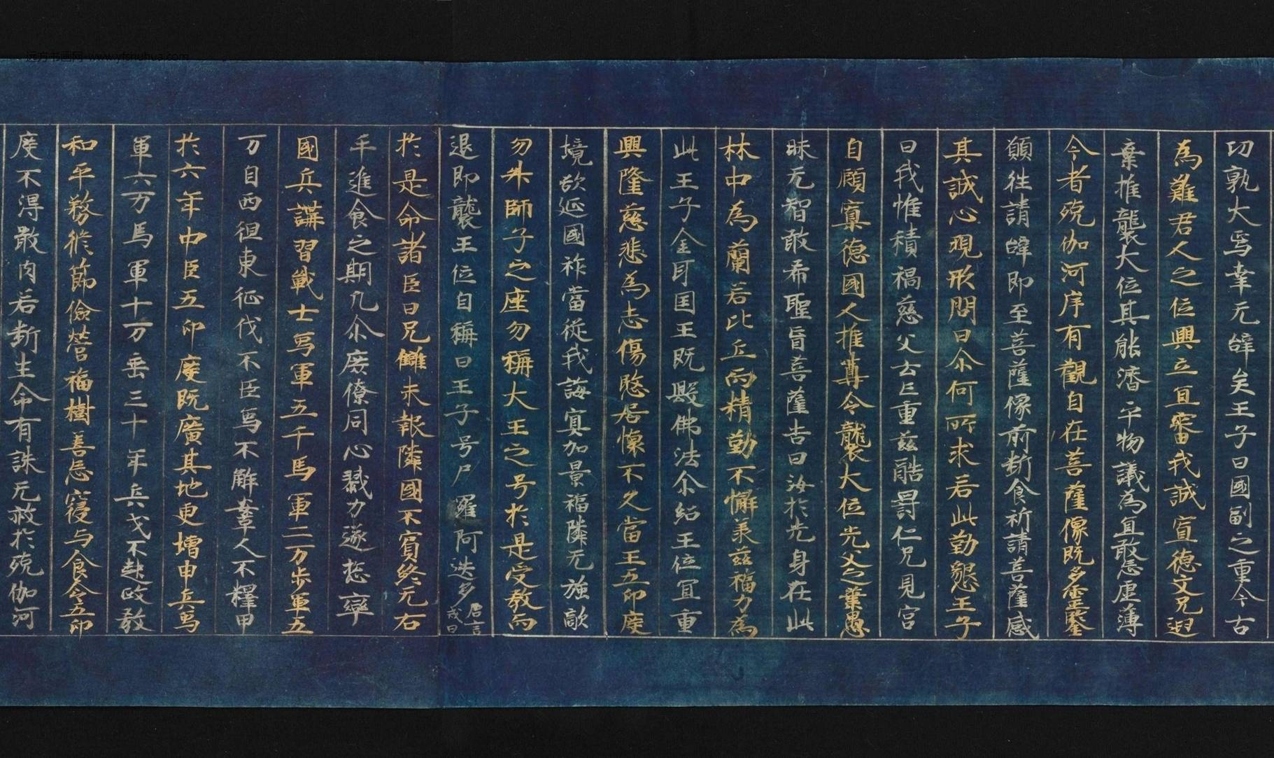 功孰大焉幸无辭矣王子曰國副之重今古
為難君人之位興立宜審我誠寡德父兄遐
棄推襲大位其能濟乎物議為宜敢忘虛薄
今者殑伽河岸有觀自在菩薩像既多靈鑒
願往請辭即至菩薩像前斷食祈請菩薩感
其誠心現形問曰尒何所求若此勤懇王子
曰我惟積禍慈父云亡重茲酷罰仁兄見害
自顧寡德國人推尊令襲大位光父之業愚
昧无智敢希聖旨菩薩告曰汝於先身在此
林中為蘭若比丘而精勤不懈美茲福力為
此王子金耳国王既毀佛法尒紹王位宜重
興隆慈悲為志傷愍居懷不久當王五印度
境欲延國祚當從我誨冥加景福隣无強敵
勿升師子之座勿稱大王之号於是受教而
退即襲王位自稱曰王子号尸羅阿迭多唐言戒日
於是命諸臣曰兄讎未報隣國不賓終无右
手進食之期凡尒庶僚同心戮力遂惣率
國兵講習戰士象軍五千馬軍二万步軍五
万自西徂東征伐不臣象不解羣人不釋甲
於六年中臣五印度既廣其地更增甲兵象
軍六万馬軍十万垂三十年兵戈不起政教
和平務脩節儉營福樹善忘寢与食令五印
度不得敢肉若斷生命有誅无赦於殑伽河